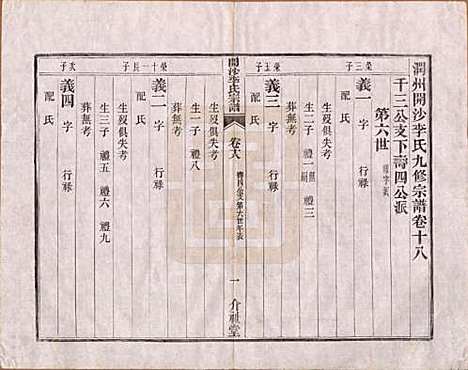 潤州開沙李氏九修宗譜卷十八
千三公支下壽四公派
第六世
榮三子
義一 字 行祿
配氏
生歿俱失考
葬無考
生二子 禮二 禮三
榮五子
義三 字 行祿
配氏
開沙李氏宗譜
卷十八
一 介祉堂
生歿俱失考
葬無考
生一子 禮八
榮十一長子
義二 字 行祿
配氏
生歿俱失考
葬無考
生三子 禮五 禮六 禮九
次子
義四 字 行祿
配氏